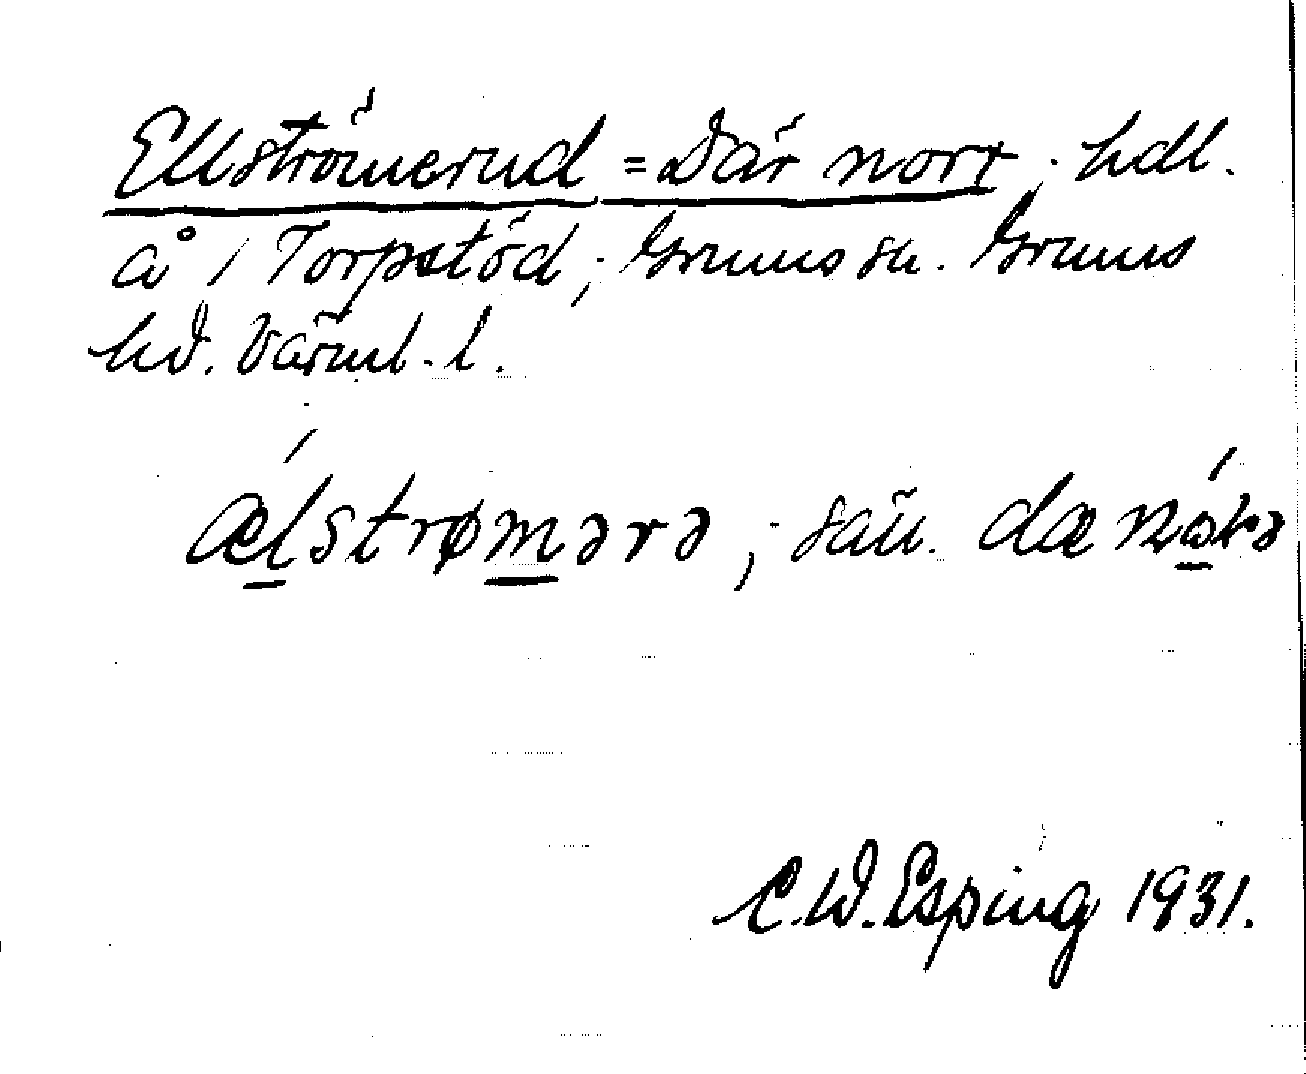 Ellströmerud = Där norr, hdl.
å i Torpstöd, Grums sn. Grums
hd. Värml. l.
ǽlstrømərə, sån. dæ nórə
C.W. Esping 1931.